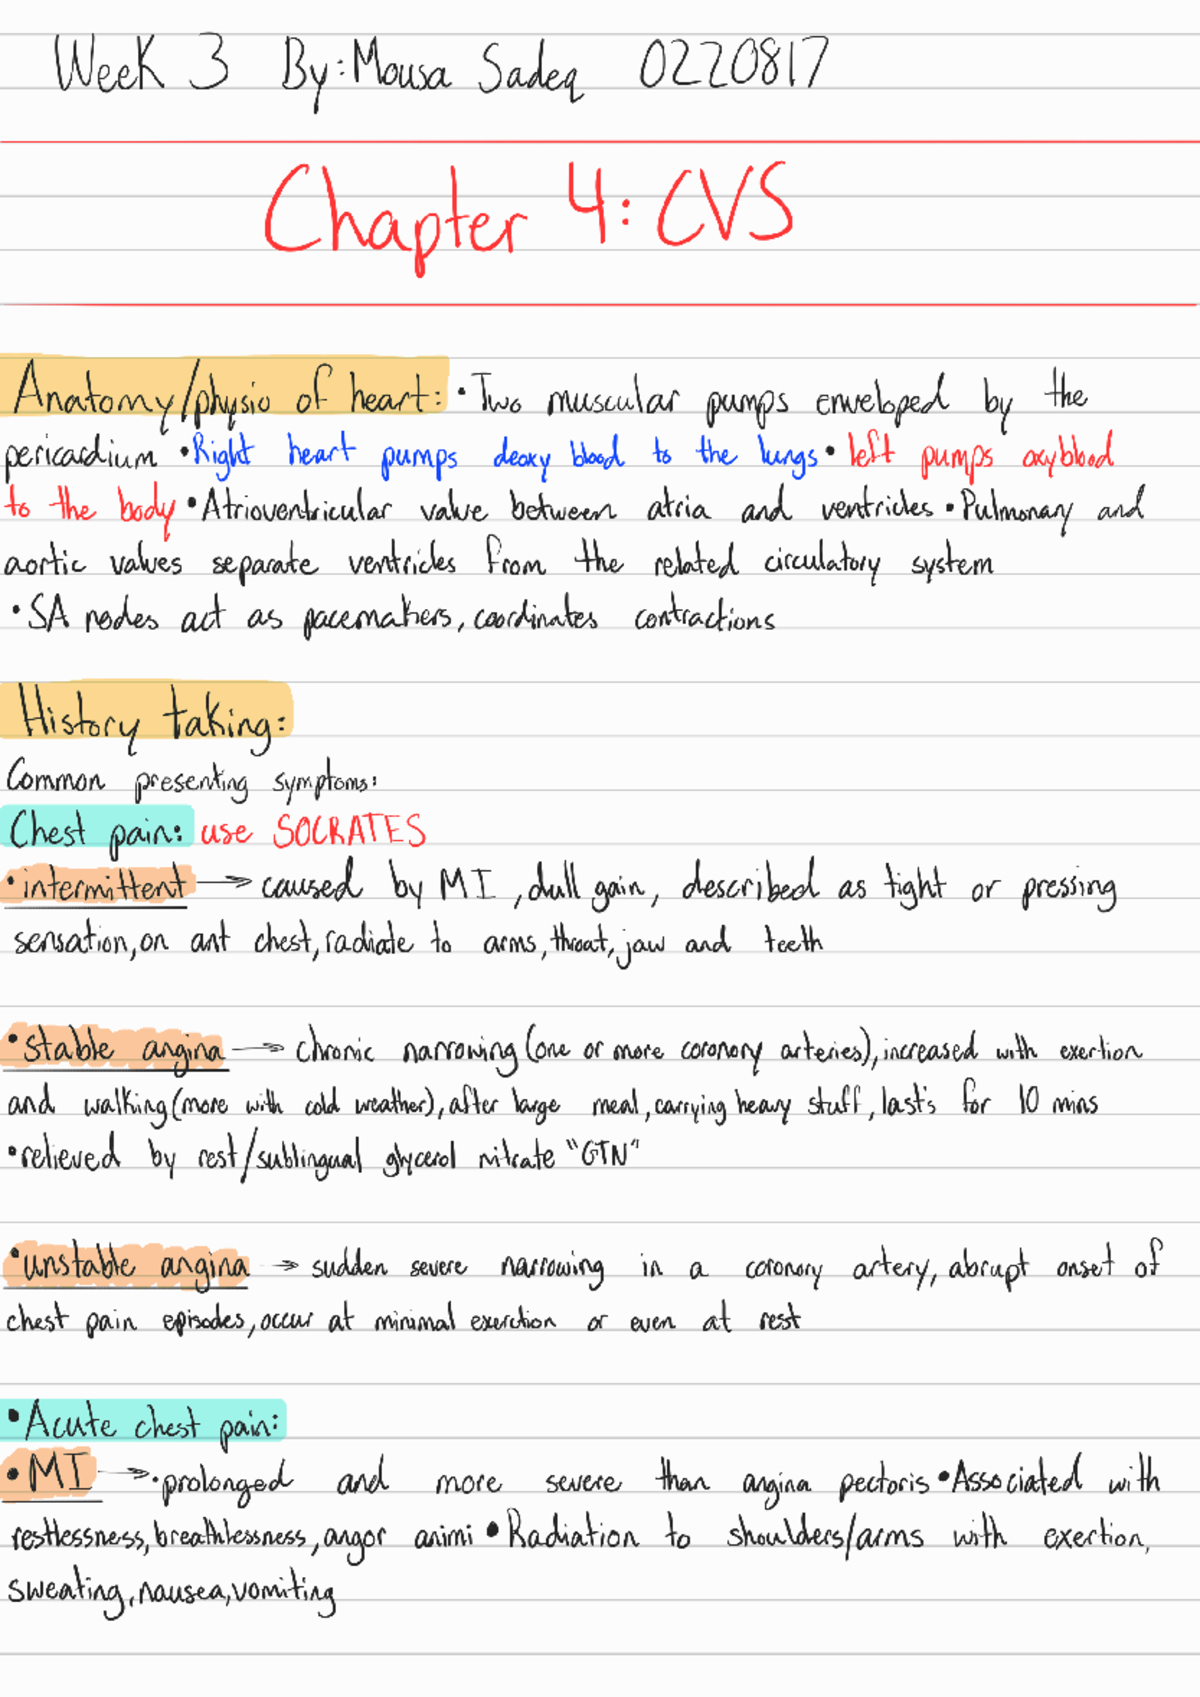 Week 3 By:Mousa Sadeq 0220817
Chapter 4: CVS
Anatomy/physio of heart: •Two muscular pumps enveloped by the
pericardium •Right heart pumps deoxy blood to the lungs• left pumps oxyblood
to the body •Atrioventricular valve between atria and ventricles •Pulmonary and
aortic valves separate ventricles from the related circulatory system
•SA nodes act as pacemakers, coordinates contractions
History taking:
Common presenting symptoms:
Chest pain: use SOCRATES
•intermittent → caused by MI, dull gain, described as tight or pressing
sensation, on ant chest, radiate to arms, throat, jaw and teeth
•stable angina → chronic narrowing (one or more coronory arteries), increased with exertion
and walking (more with cold weather), after large meal, carrying heavy stuff, lasts for 10 mins
•relieved by rest/sublingual glycerol nitrate "GTN"
•unstable angina → sudden severe narrowing in a coronory artery, abrupt onset of
chest pain episodes, occur at minimal exerction or even at rest
•Acute chest pain:
•MI → •prolonged and more severe than angina pectoris •Associated with
restlessness, breathlessness, angor animi •Radiation to shoulders/arms with exertion,
sweating, nausea, vomiting